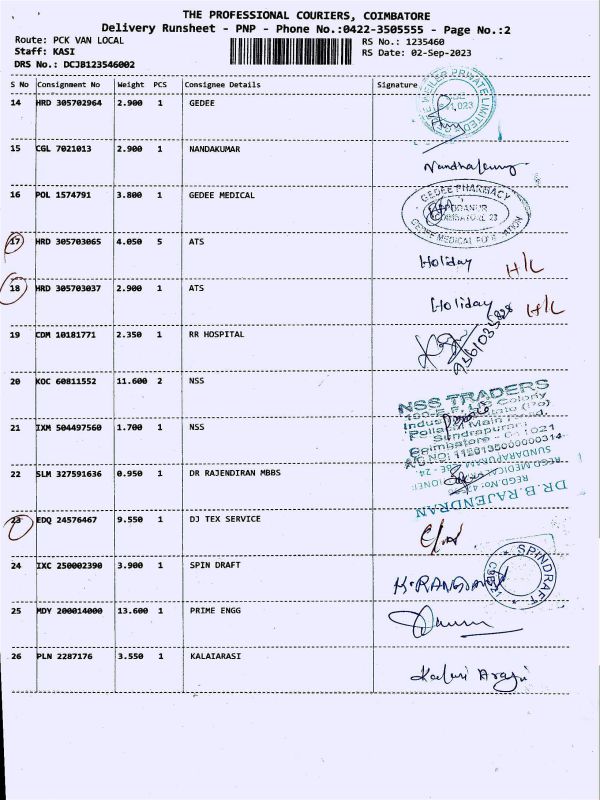 THE PROFESSIONAL COURIERS, COIMBATORE
Delivery Runsheet - PNP - Phone No.:0422-3505555 - Page No.:2
Route: PCK VAN LOCAL RS No.: 1235460
Staff: KASI RS Date: 02-Sep-2023
DRS No.: DCJB123546002
S No Consignment No Weight PCS Consignee Details Signature
14 HRD 305702964 2.900 1 GEDEE
15 CGL 7021013 2.900 1 NANDAKUMAR
16 POL 1574791 3.800 1 GEDEE MEDICAL
GEDEE PHARMACY
COIMBATORE 23
17 HRD 305703065 4.050 5 ATS Holiday H/L
18 HRD 305703037 2.900 1 ATS Holiday H/L
19 CDM 10181771 2.350 1 RR HOSPITAL
20 KOC 60811552 11.600 2 NSS
NSS TRADERS
21 IXM 504497560 1.700 1 NSS
Sundrapuram
22 SLM 327591636 0.950 1 DR RAJENDIRAN MBBS
DR.B.RAJENDRAN
23 EDQ 24576467 9.550 1 DJ TEX SERVICE
24 IXC 250002390 3.900 1 SPIN DRAFT SPINDRAFT
25 MDY 200014000 13.600 1 PRIME ENGG
26 PLN 2287176 3.550 1 KALAIARASI